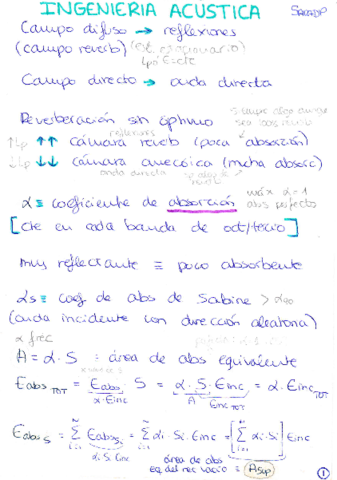 INGENIERIA ACUSTICA
Campo difuso → reflexiones
(campo reverb) (est. estacionario)
Campo directo → onda directa
Reverberación sin óptimo
↑Lp ↑↑ cámara reverb (poca absorción)
reflexiones
↓Lp ↓↓ cámara anecóica (mucha absorc)
onda directa
α ≡ coeficiente de absorción
máx α=1
abs perfecto
[cte en cada banda de oct/tercio]
muy reflectante ≡ poco absorbente
αs ≡ coef de abs de Sabine > α90
(onda incidente con dirección aleatoria)
α frec
A = α·S ≡ área de abs equivalente
Eabs TOT = Eabs S = α·S·Einc = α·Einc TOT
α·Einc A Einc TOT
Eabs S = Σ Eabs i = Σ αi·Si·Einc = [Σ αi·Si] Einc
αi·Si·Einc
área de abs
eq del rec vacío = Asup
1